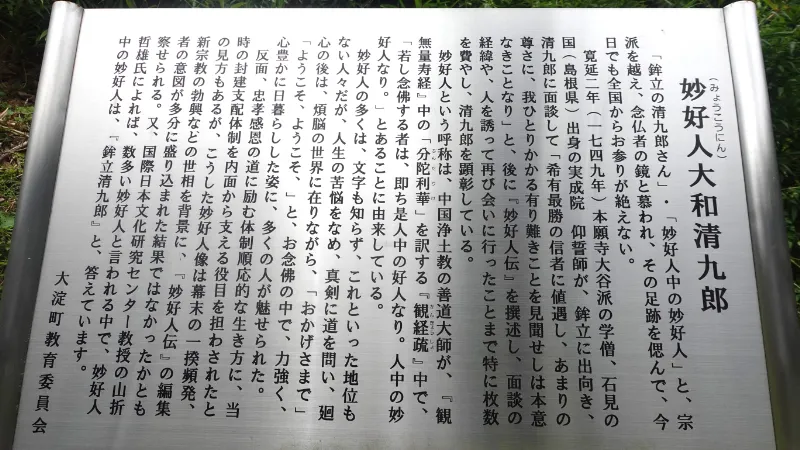 (みょうこうにん)
妙好人大和清九郎
「鉾立の清九郎さん」・「妙好人中の妙好人」と、宗
派を越え、念仏者の鏡と慕われ、その足跡を偲んで、今
日でも全国からお参りが絶えない。
寛延二年(一七四九年)本願寺大谷派の学僧、石見の
国(島根県)出身の実成院 仰誓師が、鉾立に出向き、
清九郎に面談して「希有最勝の信者に値遇し、あまりの
尊さに、我ひとりかかる有り難きことを見聞せしは本意
なきことなり」と、後に『妙好人伝』を撰述し、面談の
経緯や、人を誘って再び会いに行ったことまで特に枚数
を費やし、清九郎を顕彰している。
妙好人という呼称は、中国浄土教の善道大師が、『観
無量寿経』中の「分陀利華」を訳する『観経疏』中で、
「若し念佛する者は、即ち是人中の好人なり。人中の妙
好人なり。」とあることに由来している。
妙好人の多くは、文字も知らず、これといった地位も
ない人々だが、人生の苦悩をなめ、真剣に道を問い、廻
心の後は、煩脳の世界に在りながら、「おかげさまで」
「ようこそ、ようこそ。」と、お念佛の中で、力強く、
心豊かに日暮らしした姿に、多くの人が魅せられた。
反面、忠孝感恩の道に励む体制順応的な生き方に、当
時の封建支配体制を内面から支える役目を担わされたと
の見方もあるが、こうした妙好人像は幕末の一揆頻発、
新宗教の勃興などの世相を背景に、『妙好人伝』の編集
者の意図が多分に盛り込まれた結果ではなかったかとも
察せられる。又、国際日本文化研究センター教授の山折
哲雄氏によれば、数多い妙好人と言われる中で、妙好人
中の妙好人は、『鉾立清九郎』と、答えています。
大淀町教育委員会